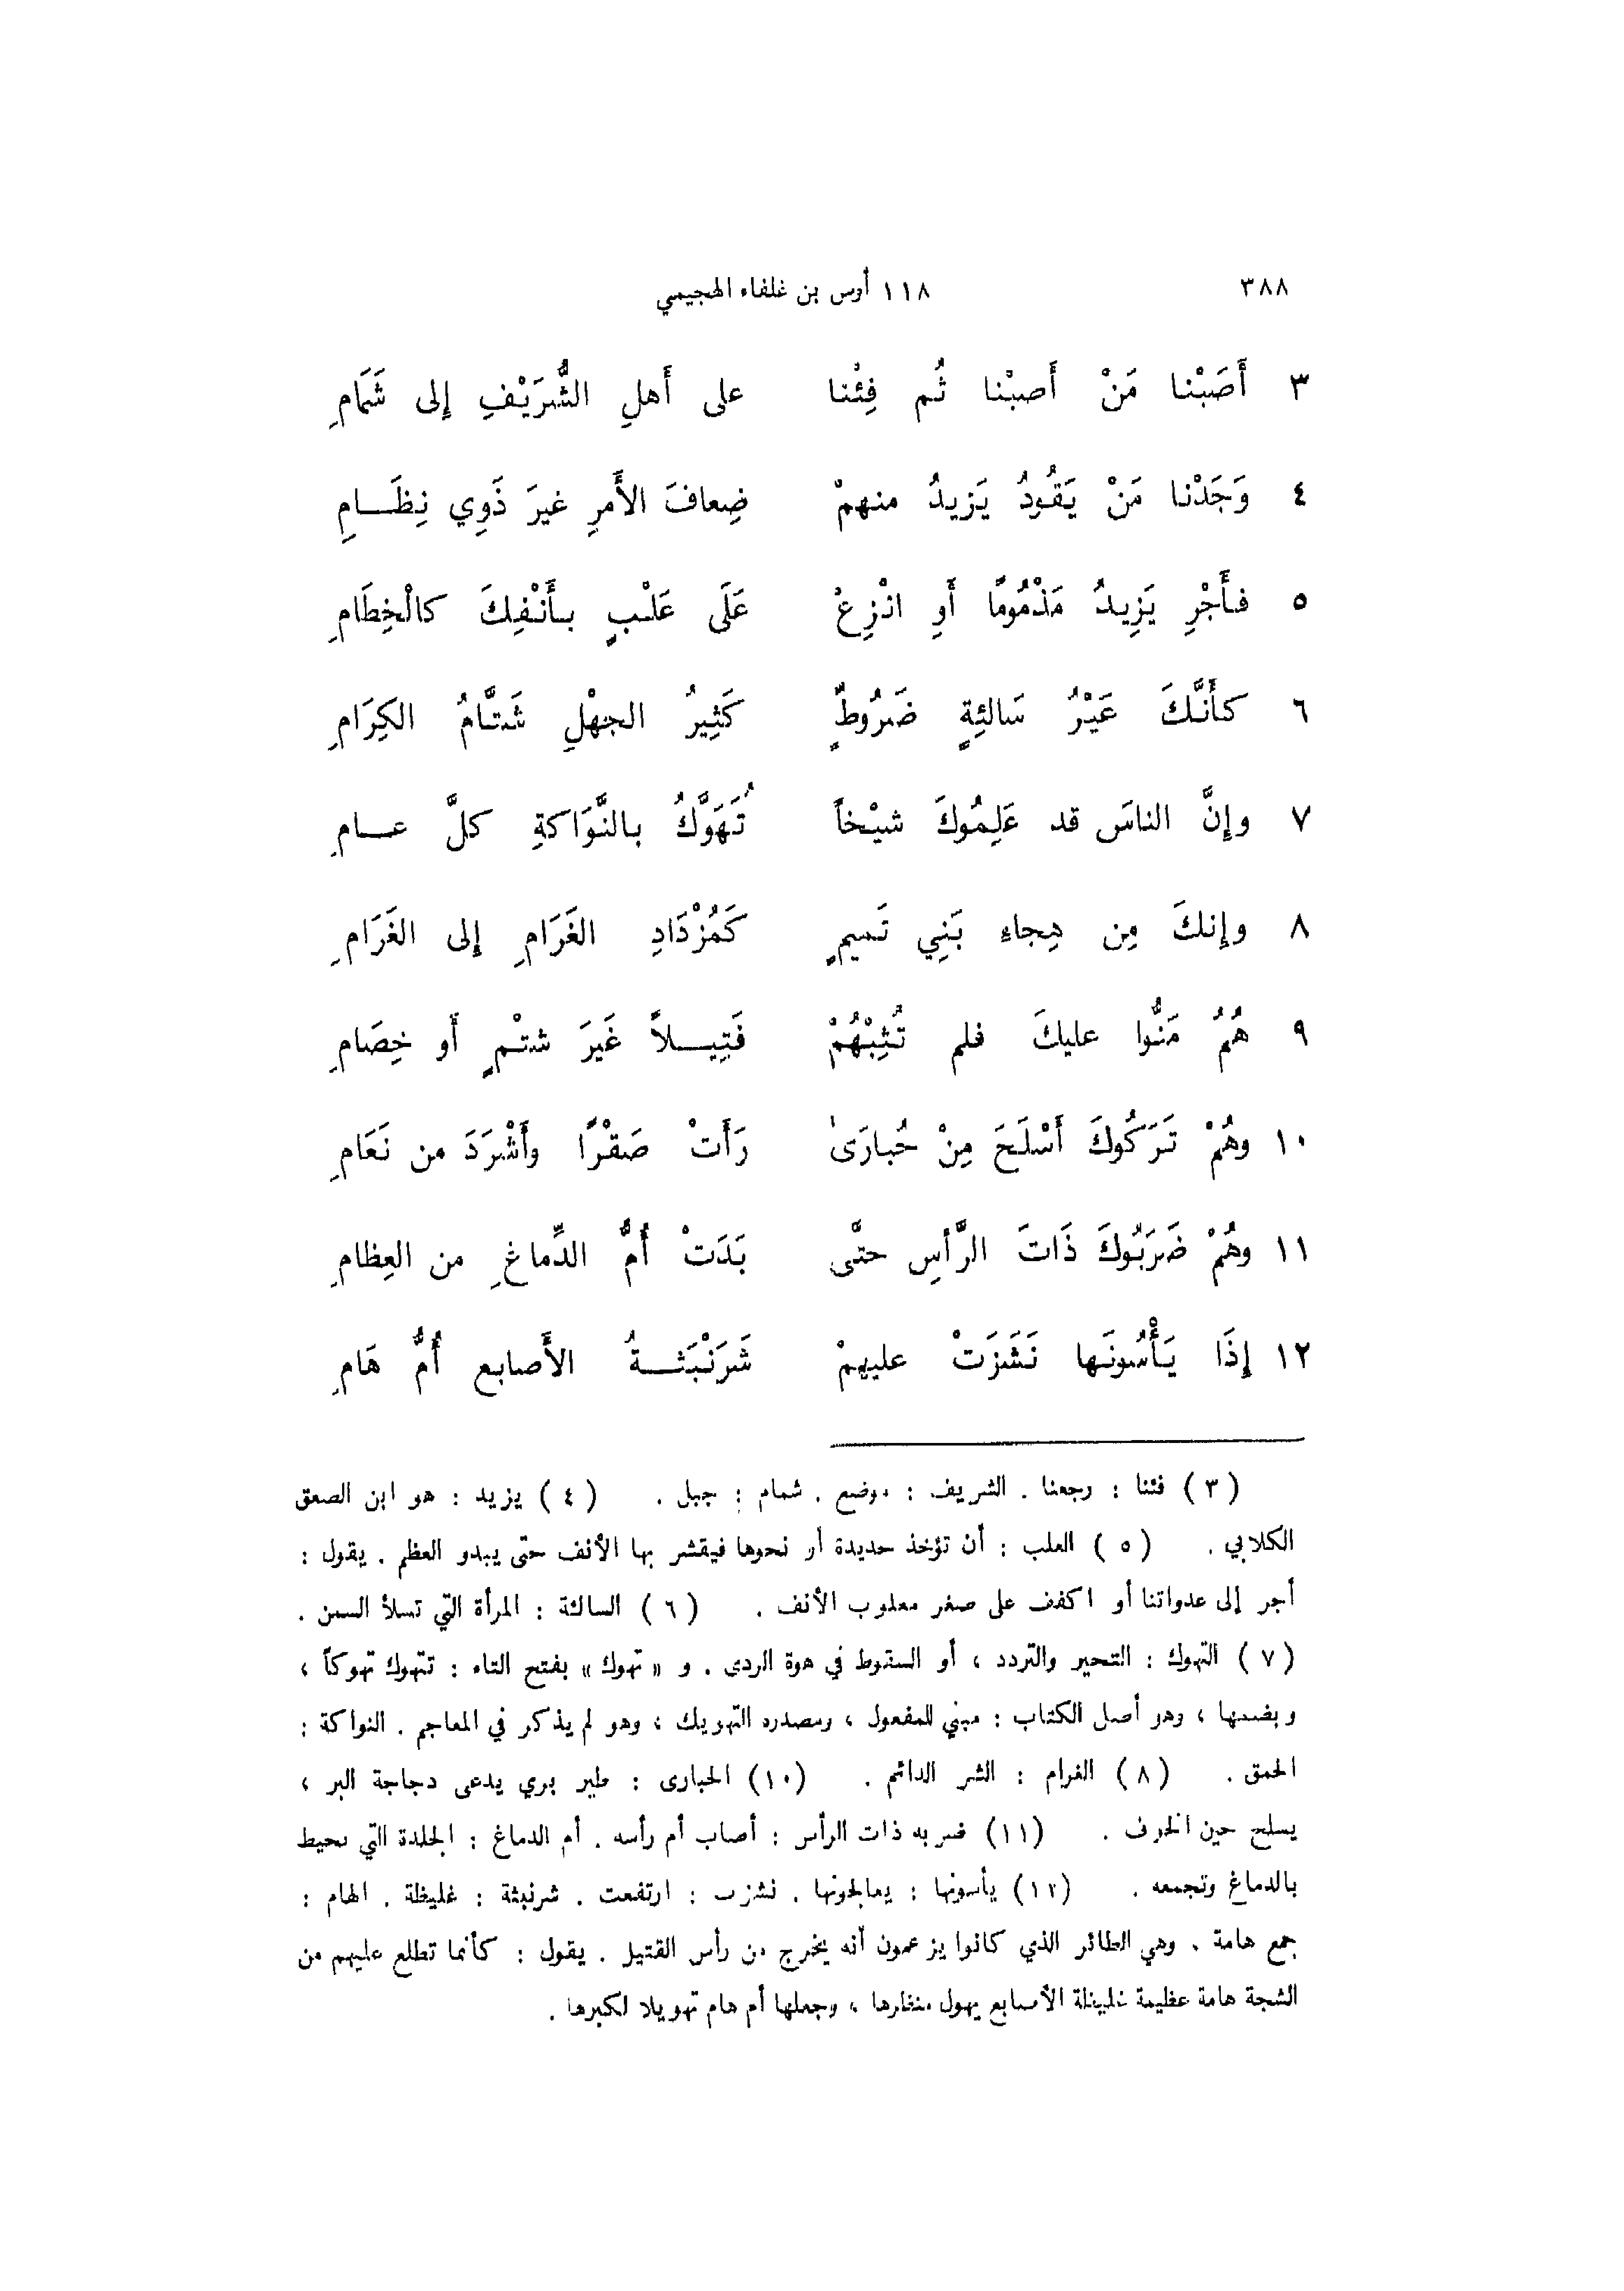 ٣٨٨ ١١٨ أوس بن غلفاء الهجيمي
٣ أَصَبْنا مَنْ أَصبْنا ثُم فِئْنا على أَهلِ الشُّرَيْفِ إِلى شَمَامِ
٤ وَجَدْنا مَنْ يَقُودُ يَزيدُ منهمْ ضِعافَ الأَمرِ غيرَ ذَوِي نِظَامِ
٥ فأَجْرِ يَزِيدُ مَذْمُومًا أَوِ انْزِعْ عَلَى عَلْبٍ بأَنْفِكَ كالْخِطَامِ
٦ كأَنَّكَ عَيْرُ سَالئِةٍ ضَرُوطٌ كَثِيرُ الجهْلِ شَتَّامُ الكِرَامِ
٧ وإِنَّ الناسَ قد عَلِمُوكَ شيْخاً تُهَوَّكُ بالنَّوَاكةِ كلَّ عامِ
٨ وإِنكَ مِن هِجاءِ بَنِي تَميمٍ كَمُزْدَادِ الغَرَامِ إِلى الغَرَامِ
٩ هُمُ مَنُّوا عليكَ فلم تُثِبْهُمْ فَتِيلاً غَيرَ شتْمٍ أَو خِصَامِ
١٠ وهُمْ تَرَكُوكَ أَسْلَحَ مِنْ حُبارَىٰ رَأَتْ صَقْرًا وأَشْرَدَ من نَعَامِ
١١ وهُمْ ضَرَبُوكَ ذَاتَ الرَّأْسِ حتَّى بَدَتْ أُمُّ الدِّماغِ من العِظامِ
١٢ إِذَا يَأْسُونَها نَشَزَتْ عليهمْ شَرَنْبَثةُ الأَصابع أُمُّ هَامِ
(٣) فئنا : رجعنا . الشريف : موضع . شمام : جبل . (٤) يزيد : هو ابن الصعق
الكلابي . (٥) العلب : أن تؤخذ حديدة أو نحوها فيقشر بها الأنف حتى يبدو العظم . يقول :
أجر إلى عدواتنا أو اكفف على صغر معلوب الأنف . (٦) السالئة : المرأة التي تسلأ السمن .
(٧) التهوك : التحير والتردد ، أو السقوط في هوة الردى . و « تهوك » بفتح التاء : تتهوك تهوكاً ،
وبضمها ، وهو أصل الكتاب : مبني للمفعول ، ومصدره التهويك ، وهو لم يذكر في المعاجم . النواكة :
الحمق . (٨) الغرام : الشر الدائم . (١٠) الحبارى : طير بري يدعى دجاجة البر ،
يسلح حين الخوف . (١١) ضربه ذات الرأس : أصاب أم رأسه . أم الدماغ : الجلدة التي تحيط
بالدماغ وتجمعه . (١٢) يأسونها : يعالجونها . نشزت : ارتفعت . شرنبثة : غليظة . الهام :
جمع هامة . وهي الطائر الذي كانوا يزعمون أنه يخرج من رأس القتيل . يقول : كأنما تطلع عليهم من
الشجة هامة عظيمة غليظة الأصابع يهول منظرها ، وجعلها أم هام تهويلا لكبرها .